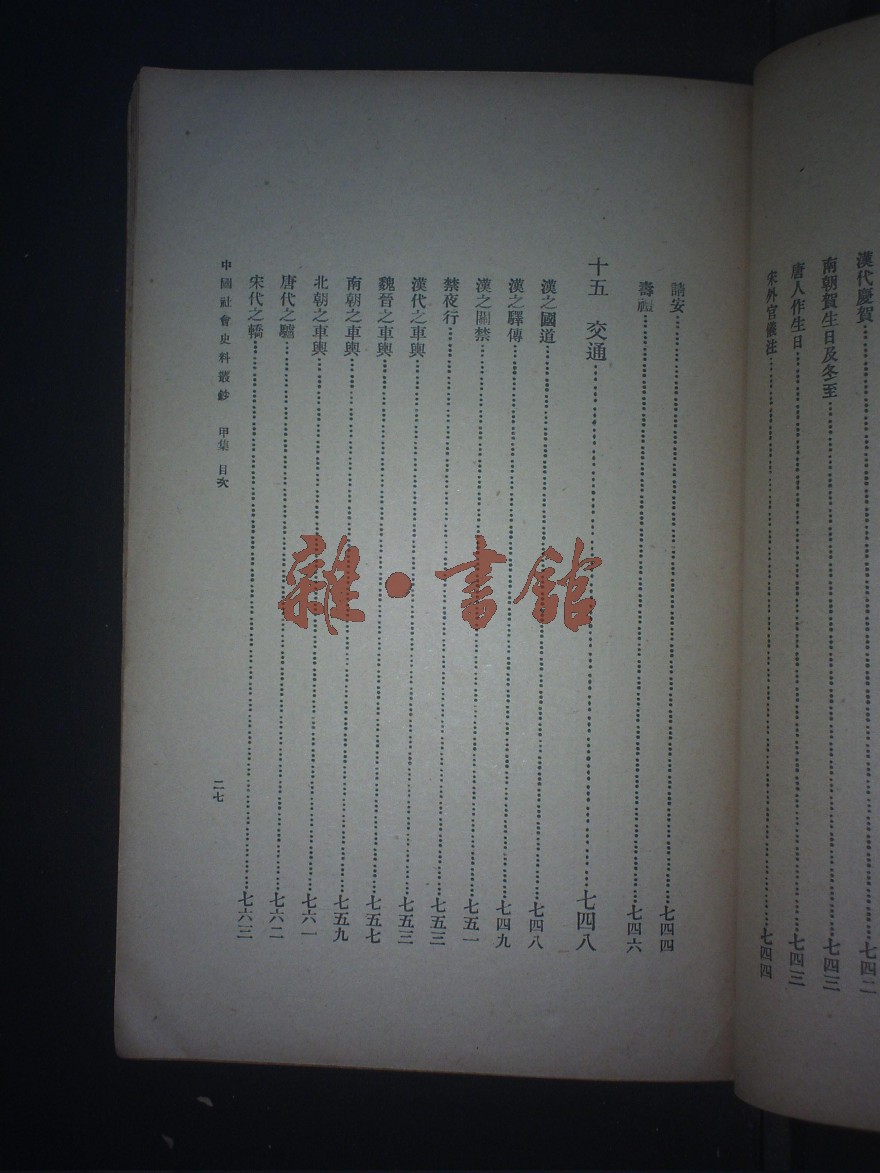 漢代慶賀……七四二
南朝賀生日及冬至……七四三
唐人作生日……七四三
宋外官儀注……七四四
請安……七四四
壽禮……七四六
十五 交通……七四八
漢之國道……七四八
漢之驛傳……七四九
漢之關禁……七五一
禁夜行……七五三
漢代之車輿……七五三
魏晉之車輿……七五七
南朝之車輿……七五九
北朝之車輿……七六一
唐代之驢……七六二
宋代之轎……七六三
中國社會史料叢鈔 甲集 目次 二七
雜·書館